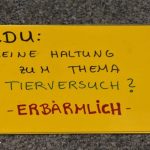 CDU:
KEINE HALTUNG
ZUM THEMA
TIERVERSUCH?
- ERBÄRMLICH -